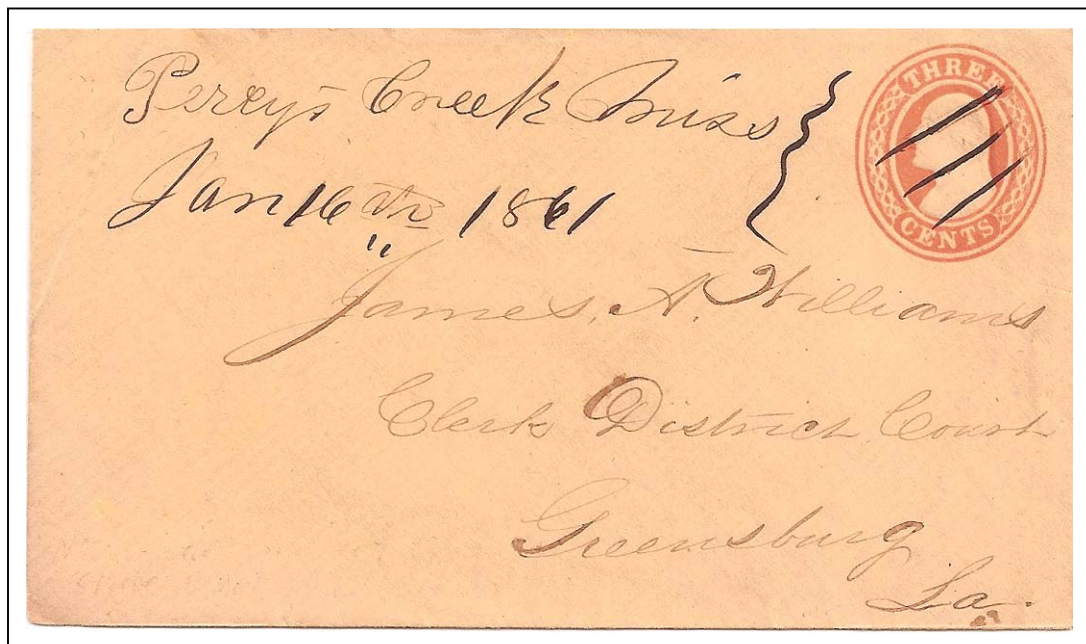 Percys Creek Miss
Jan 16th 1861
THREE
CENTS
James, A. Williams
Clerk District Court
Greensburg
La.